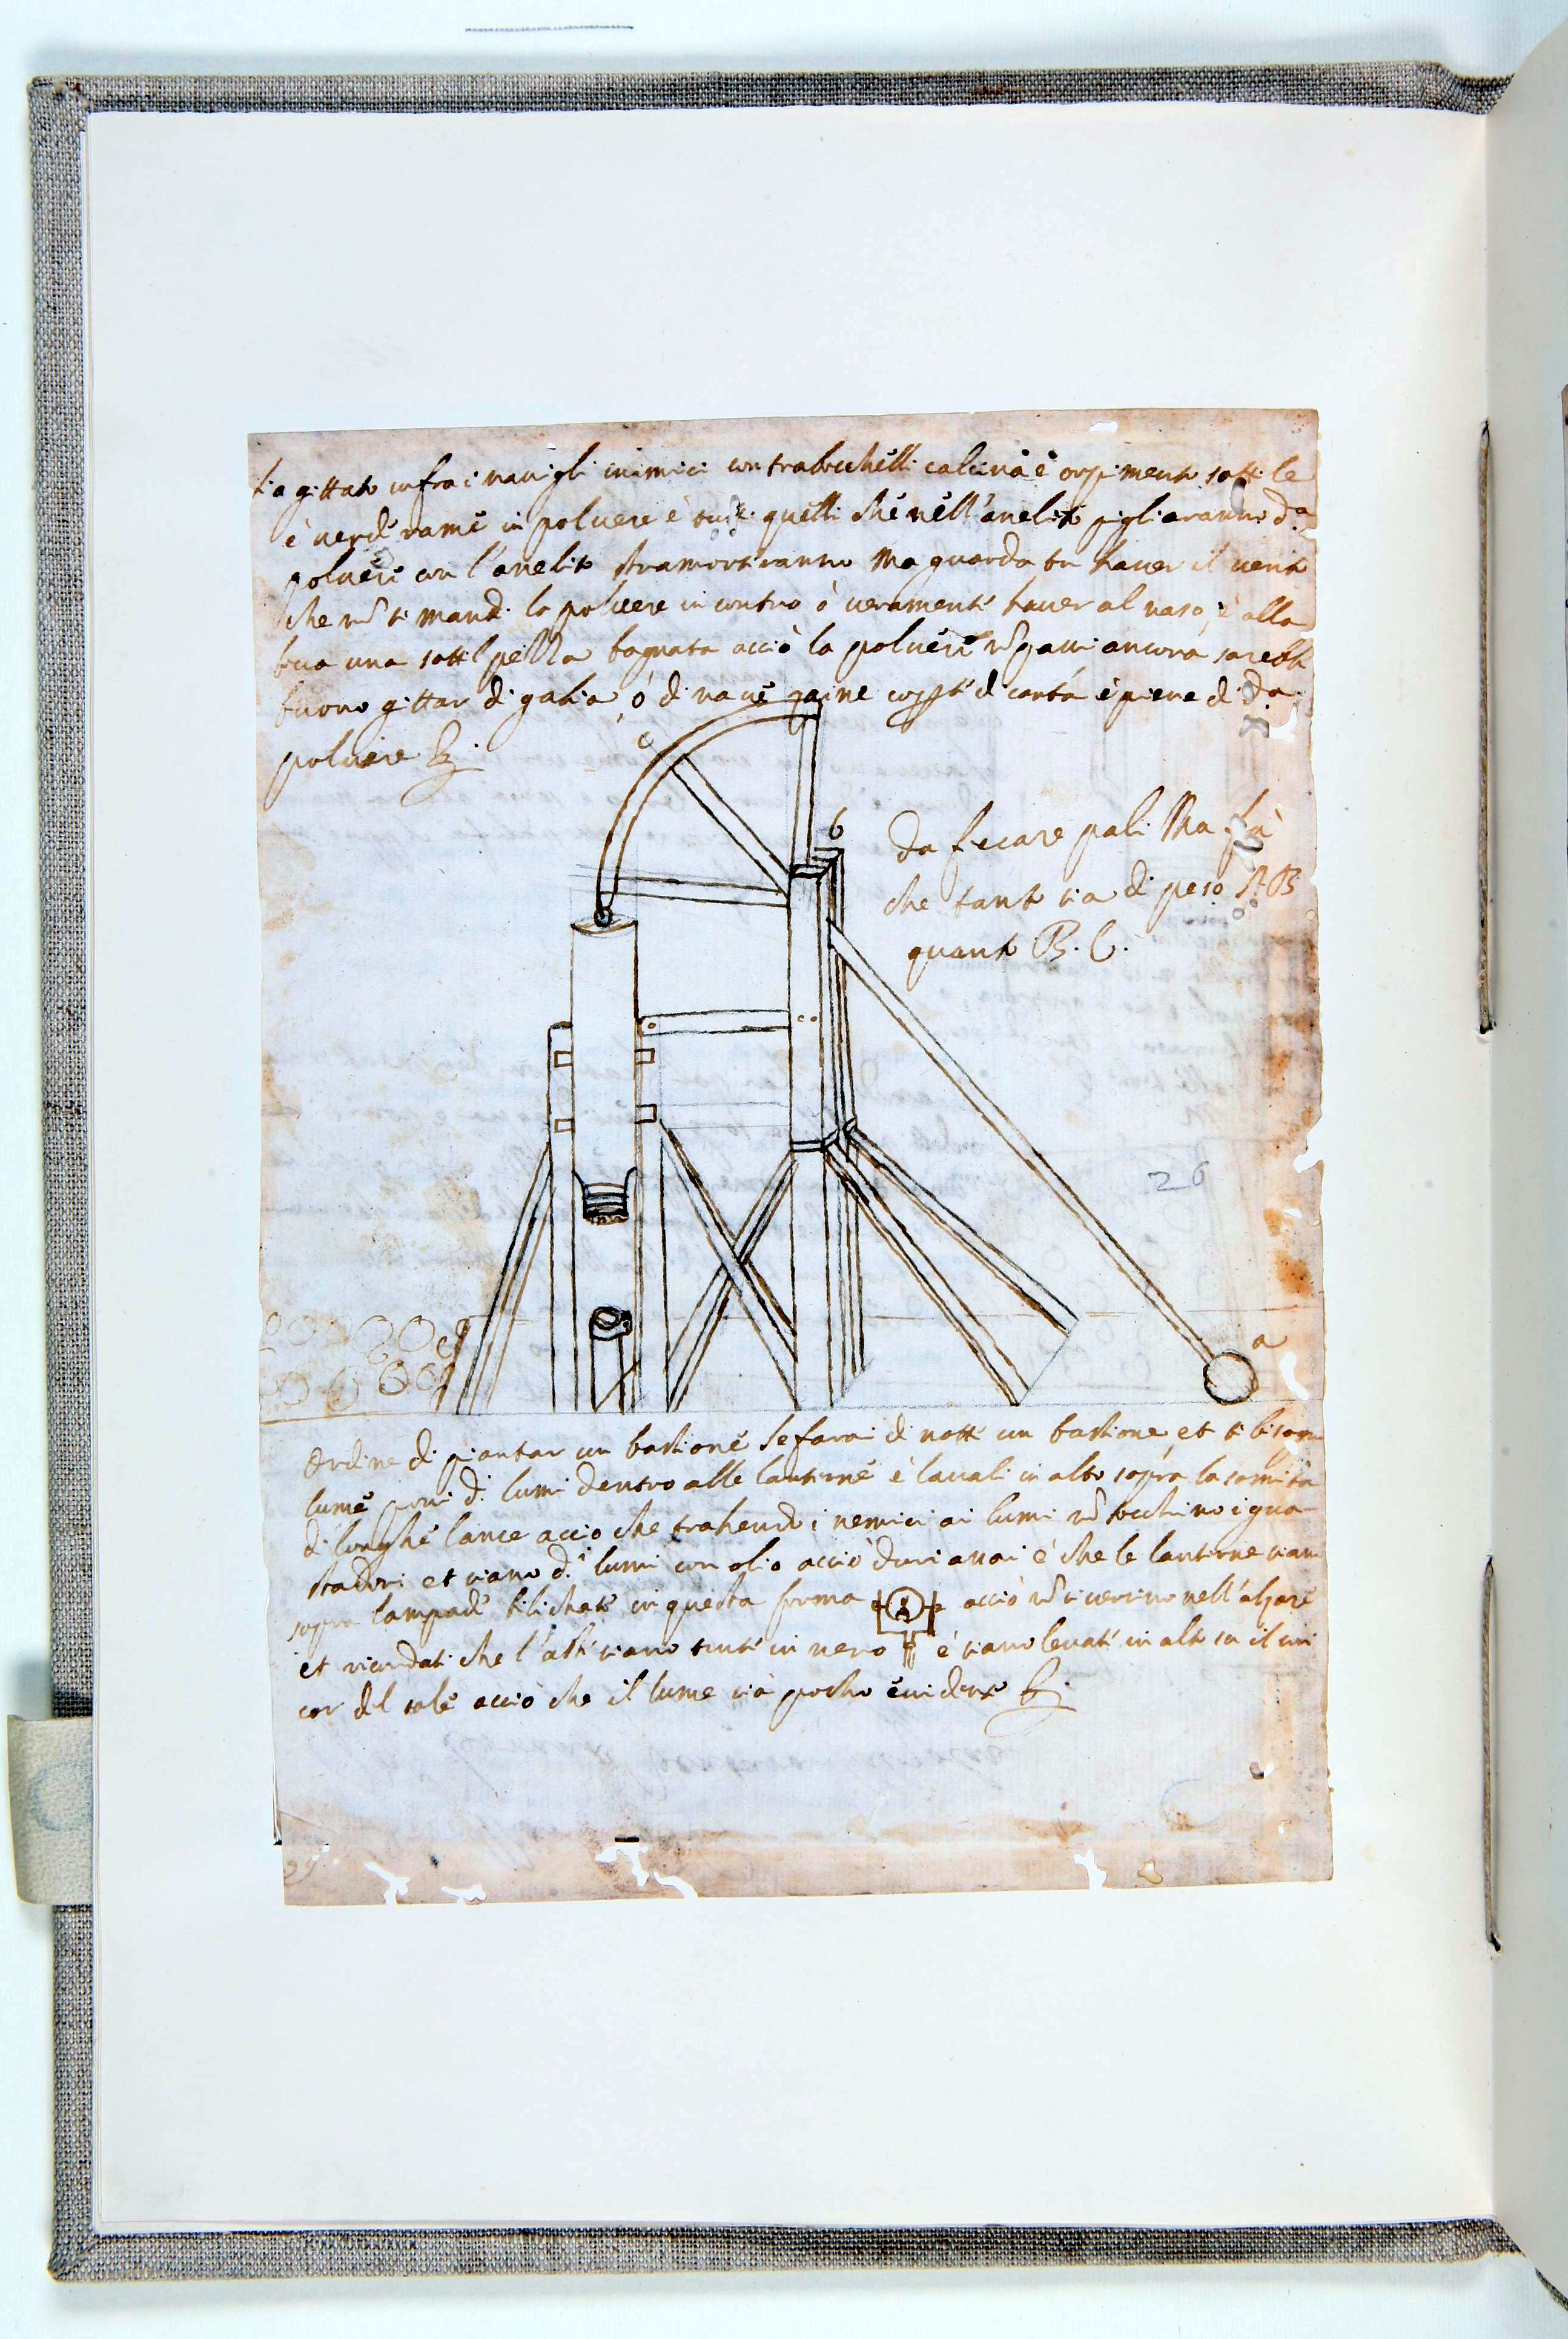 sia gittato infra i navigli inimici con trabocchelli calcina è orpimento sottile
è verderame in polvere è tutti quelli che nell'anelito pigliaranno d.ª
polvere con l'anelito stramortiranno Ma guarda tu haver il vento
che nõ ti mandi la polvere incontro ò veramente haver al naso, è alla
boca una sottil pezza bagnata acciò la polvere nõ passi ancora sarebbe
buono gittar di gabia, ó di nave zaine coperte di carta è piene di d.ª
polvere
c
b
Da ficcare pali Ma fa
che tanto sia di peso A B
quanto B. C.
26
a
Ordine di piantar un bastione Se farai di notte un bastione, et ti bisogni
lume poni d.i lumi dentro alle lanterne è lavali in alto sopra la somita
di longhe lance accio che trahendo i nemici ai lumi nõ tocchino i gua
stadori et siano d.i lumi con olio acciò duri assai è che le lanterne siano
sopra lampade bilichate in questa forma acciò nõ si versino nell'alzare
et ricordati che l'asti siano tinte in nero è siano levate in alto su il cori
car del sole acciò che il lume sia pocho evidente